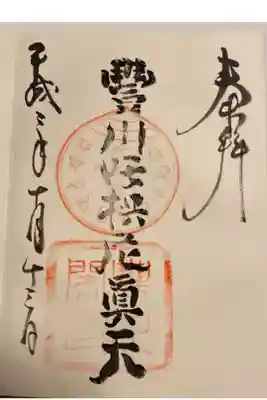 奉拜
豐川吒枳尼眞天
平成三年十月十三日